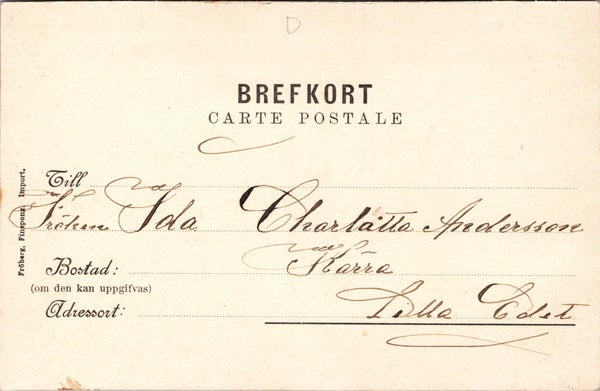 D
BREFKORT
CARTE POSTALE
Till
Fröken Ida Charlåtta Andersson
Kärra
Bostad:
(om den kan uppgifvas)
Adressort:
Lilla Edet
Fröberg, Finspong, Import.